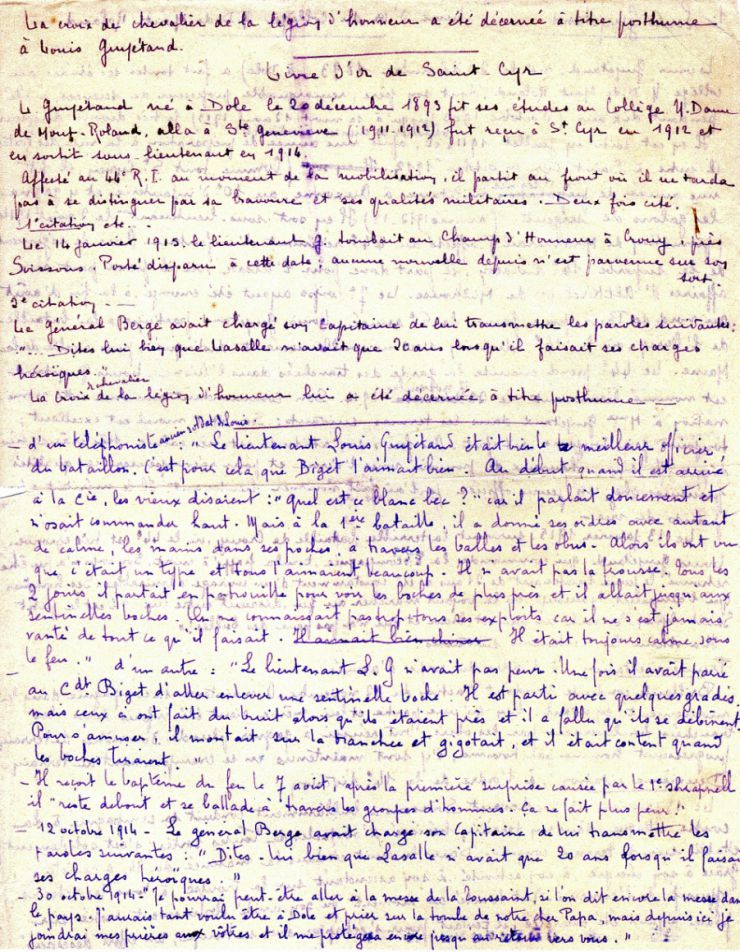 La croix de chevalier de la légion d'honneur a été décernée à titre posthume
à Louis Guyétand.
Livre d'or de Saint Cyr
L. Guyétand né à Dole le 20 décembre 1893 fit ses études au Collège N. Dame
de Mont-Roland, alla à Ste Geneviève (1911-1912) fut reçu à St Cyr en 1912 et
en sortit sous-lieutenant en 1914.
Affecté au 44e R.I. au moment de la mobilisation, il partit au front où il ne tarda
pas à se distinguer par sa bravoure et ses qualités militaires. Deux fois cité.
1e citation etc. -
Le 14 janvier 1915 le lieutenant g. tombait au Champ d'Honneur à Crouy, près
Soissons. Porté disparu à cette date, aucune nouvelle depuis n'est parvenue sur son
sort.
2e citation. —
Le Général Berge avait chargé son capitaine de lui transmettre les paroles suivantes:
"... Dites lui bien que Lasalle n'avait que 20 ans lorsqu'il faisait ses charges
héroïques."
La Croix de chevalier de la légion d'honneur lui a été décernée à titre posthume —
d'un téléphoniste : "Le lieutenant Louis Guyétand était bien le meilleur officier
du bataillon. C'est pour cela que Biget l'aimait bien. Au début quand il est arrivé
à la Cie, les vieux disaient : "Quel est ce blanc bec ?" car il parlait doucement et
n'osait commander haut. Mais à la 1ère bataille, il a donné ses ordres avec autant
de calme, les mains dans ses poches, à travers les balles et les obus. Alors ils ont vu
que c'était un type et tous l'aimaient beaucoup. Il n'avait pas la frousse. Tous les
2 jours il partait en patrouille pour voir les boches de plus près et il allait jusqu'aux
sentinelles boches. On ne connaissait pas trop tous ses exploits car il ne s'est jamais
vanté de tout ce qu'il faisait. Il aimait bien Il était toujours calme sous
le feu."
d'un autre : "Le lieutenant L. G n'avait pas peur. Une fois il avait parié
au Cdt Biget d'aller enlever une sentinelle boche. Il est parti avec quelques gradés,
mais ceux ci ont fait du bruit alors qu'ils étaient près et il a fallu qu'ils se débinent.
Pour s'amuser, il montait sur la tranchée et gigotait, et il était content quand
les boches tiraient."
- Il reçoit le baptème du feu le 7 août, après la première surprise causée par le 1er shrapnell
il "reste debout et se ballade à travers les groupes d'hommes. Ça ne fait plus peur"
- 12 octobre 1914 - Le général Berge avait chargé son Capitaine de lui transmettre les
paroles suivantes : "Dites-lui bien que Lasalle n'avait que 20 ans lorsqu'il faisait
ses charges héroïques."
- 30 octobre 1914 - "Je pourrai peut-être aller à la messe de la Toussaint, si l'on dit encore la messe dans
le pays. J'aurais tant voulu être à Dole et prier sur la tombe de notre cher Papa, mais depuis ici je
joindrai mes prières aux vôtres et il me protégera encore jusqu'au retour vers vous."